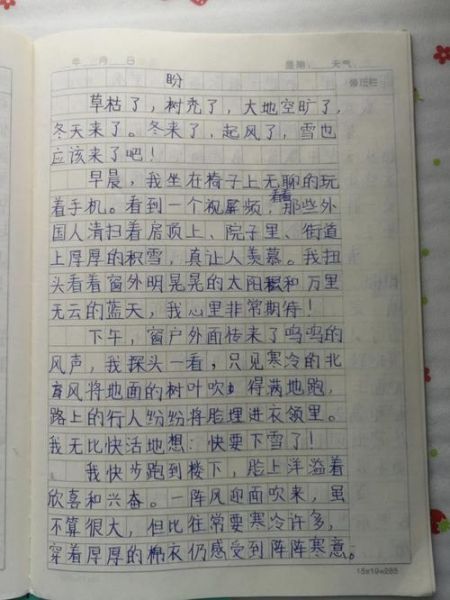 年 月 日 星期： 天气
盼
修正栏
草枯了，树秃了，大地空旷了，
冬天来了。冬来了，起风了，雪也
应该来了吧！
早晨，我坐在椅子上无聊的玩
着手机。看到一个视屏频，看着那些外
国人清扫着房顶上、院子里、街道
上厚厚的积雪，真让人羡慕。我扭
头看着窗外明晃晃的太阳和万里
无云的蓝天，我心里非常期待！
下午，窗户外面传来了呜呜的
风声，我探头一看，只见寒冷的北
风将地面的树叶吹得满地跑，
路上的行人纷纷将脸埋进衣领里。
我无比快活地想：快要下雪了！
我快步跑到楼下，脸上洋溢着
欣喜和兴奋。一阵风迎面吹来，虽
不算很大，但比往常要寒冷许多，
穿着厚厚的棉衣仍感受到阵阵寒意。
15×19=285